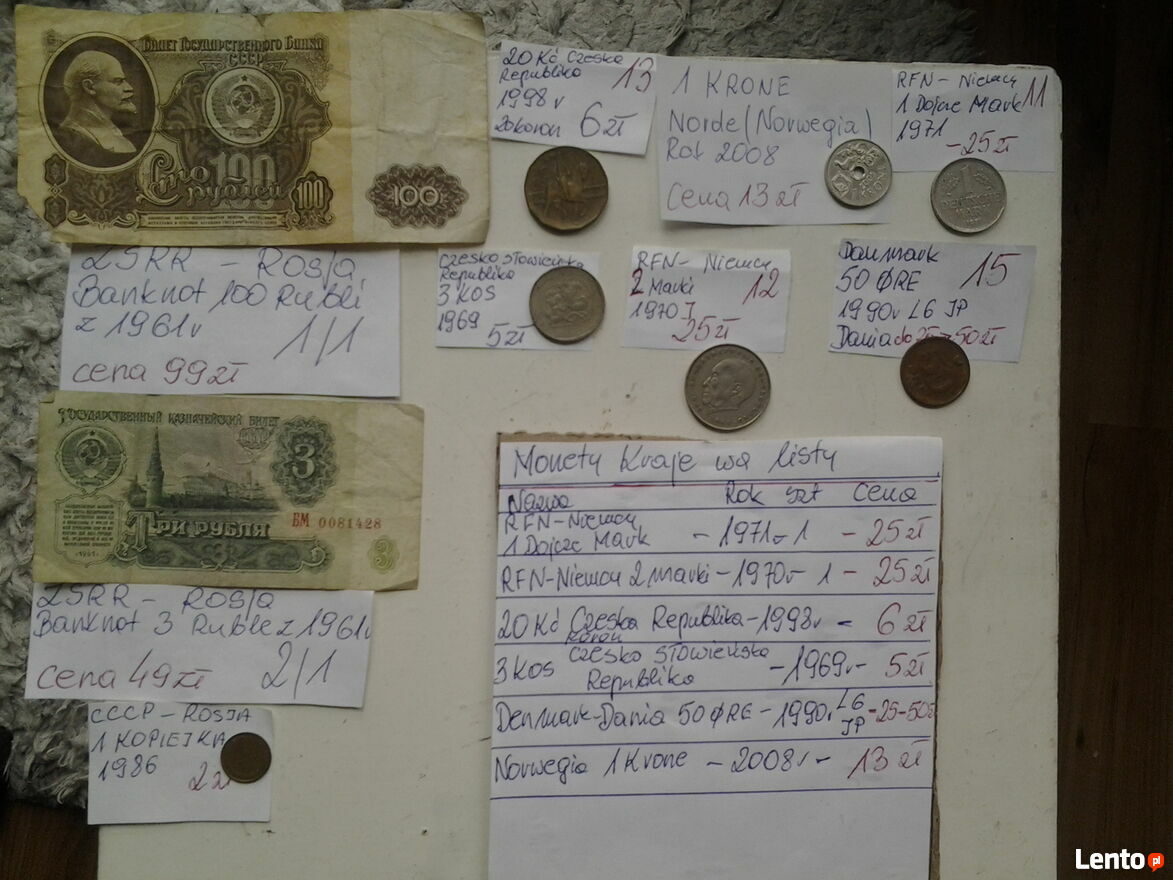 Билет Государственного Банка
СССР
Сто 100
рублей
100
100
ZSRR - ROSJA
Banknot 100 Rubli
z 1961r
1/1
cena 99zł
Государственный казначейский билет
3
Три рубля
БМ 0081428
1961
3
ZSRR - ROSJA
Banknot 3 Ruble z 1961r
cena 49zł
2/1
CCCP - ROSJA
1 KOPIEJKA
1986
2zł
20 Kč Czeska
Republika
13
1998r
20koron 6zł
1 KRONE
Norde (Norwegia)
Rok 2008
Cena 13zł
RFN - Niemcy
1 Dojcze Mark 11
1971
-25zł
1
DEUTSCHE
MARK
Czesko słowieńska
Republika
3 KOS
1969
5zł
RFN - Niemcy
2 Marki 12
1970 J
25zł
Danmark
50 ØRE 15
1990r LG JP
Dania do 25-50zł
Monety Kraje wa listy
Nazwa Rok szt Cena
RFN-Niemcy
1 Dojcze Mark - 1971r 1 - 25zł
RFN-Niemcy 2 marki - 1970r 1 - 25zł
20 Kč Czeska Republika - 1998r - 6zł
koron
3 KOS Czesko słowieńska
Republika - 1969r - 5zł
Denmark-Dania 50 ØRE - 1990r LG JP - 25-50zł
Norwegia 1 Krone - 2008r - 13zł
Lento.pl